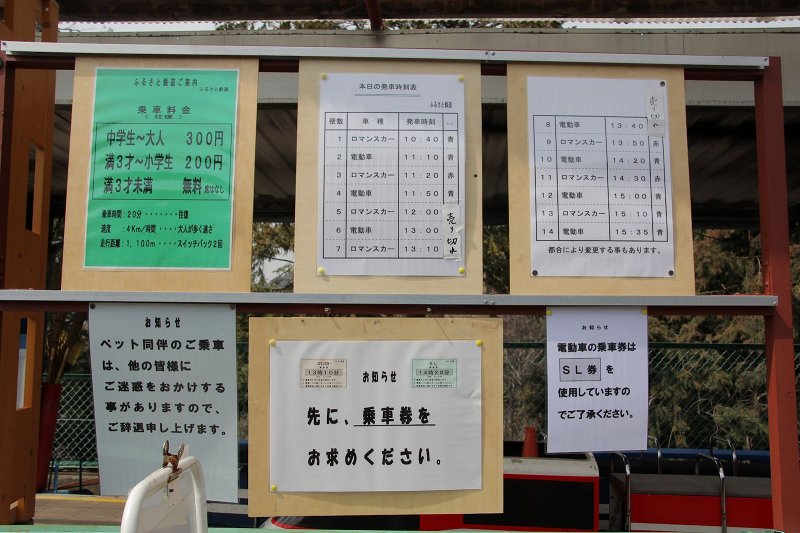 ふるさと鉄道ご案内
ふるさと鉄道
乗車料金
(往復)
中学生～大人 300円
満3才～小学生 200円
満3才未満 無料 席はなし
乗車時間:20分・・・・・・・往復
速度 :4Km/時間・・・・大人が歩く速さ
走行距離:1,100m・・・・スイッチバック2回
本日の発車時刻表
ふるさと鉄道
便数 車種 発車時刻
1 ロマンスカー 10:40 青
2 電動車 11:10 青
3 ロマンスカー 11:20 赤
4 電動車 11:50 青
5 ロマンスカー 12:00
6 電動車 13:00
7 ロマンスカー 13:10
売り切れ
売り切れ
8 電動車 13:40
9 ロマンスカー 13:50 赤
10 電動車 14:20 青
11 ロマンスカー 14:30 赤
12 電動車 15:00 青
13 ロマンスカー 15:10 青
14 電動車 15:35 青
都合により変更する事もあります。
お知らせ
ペット同伴のご乗車
は、他の皆様に
ご迷惑をおかけする
事がありますので、
ご辞退申し上げます。
13時10分
SL
14時20分
お知らせ
先に、乗車券を
お求めください。
お知らせ
電動車の乗車券は
SL券 を
使用していますの
でご了承ください。